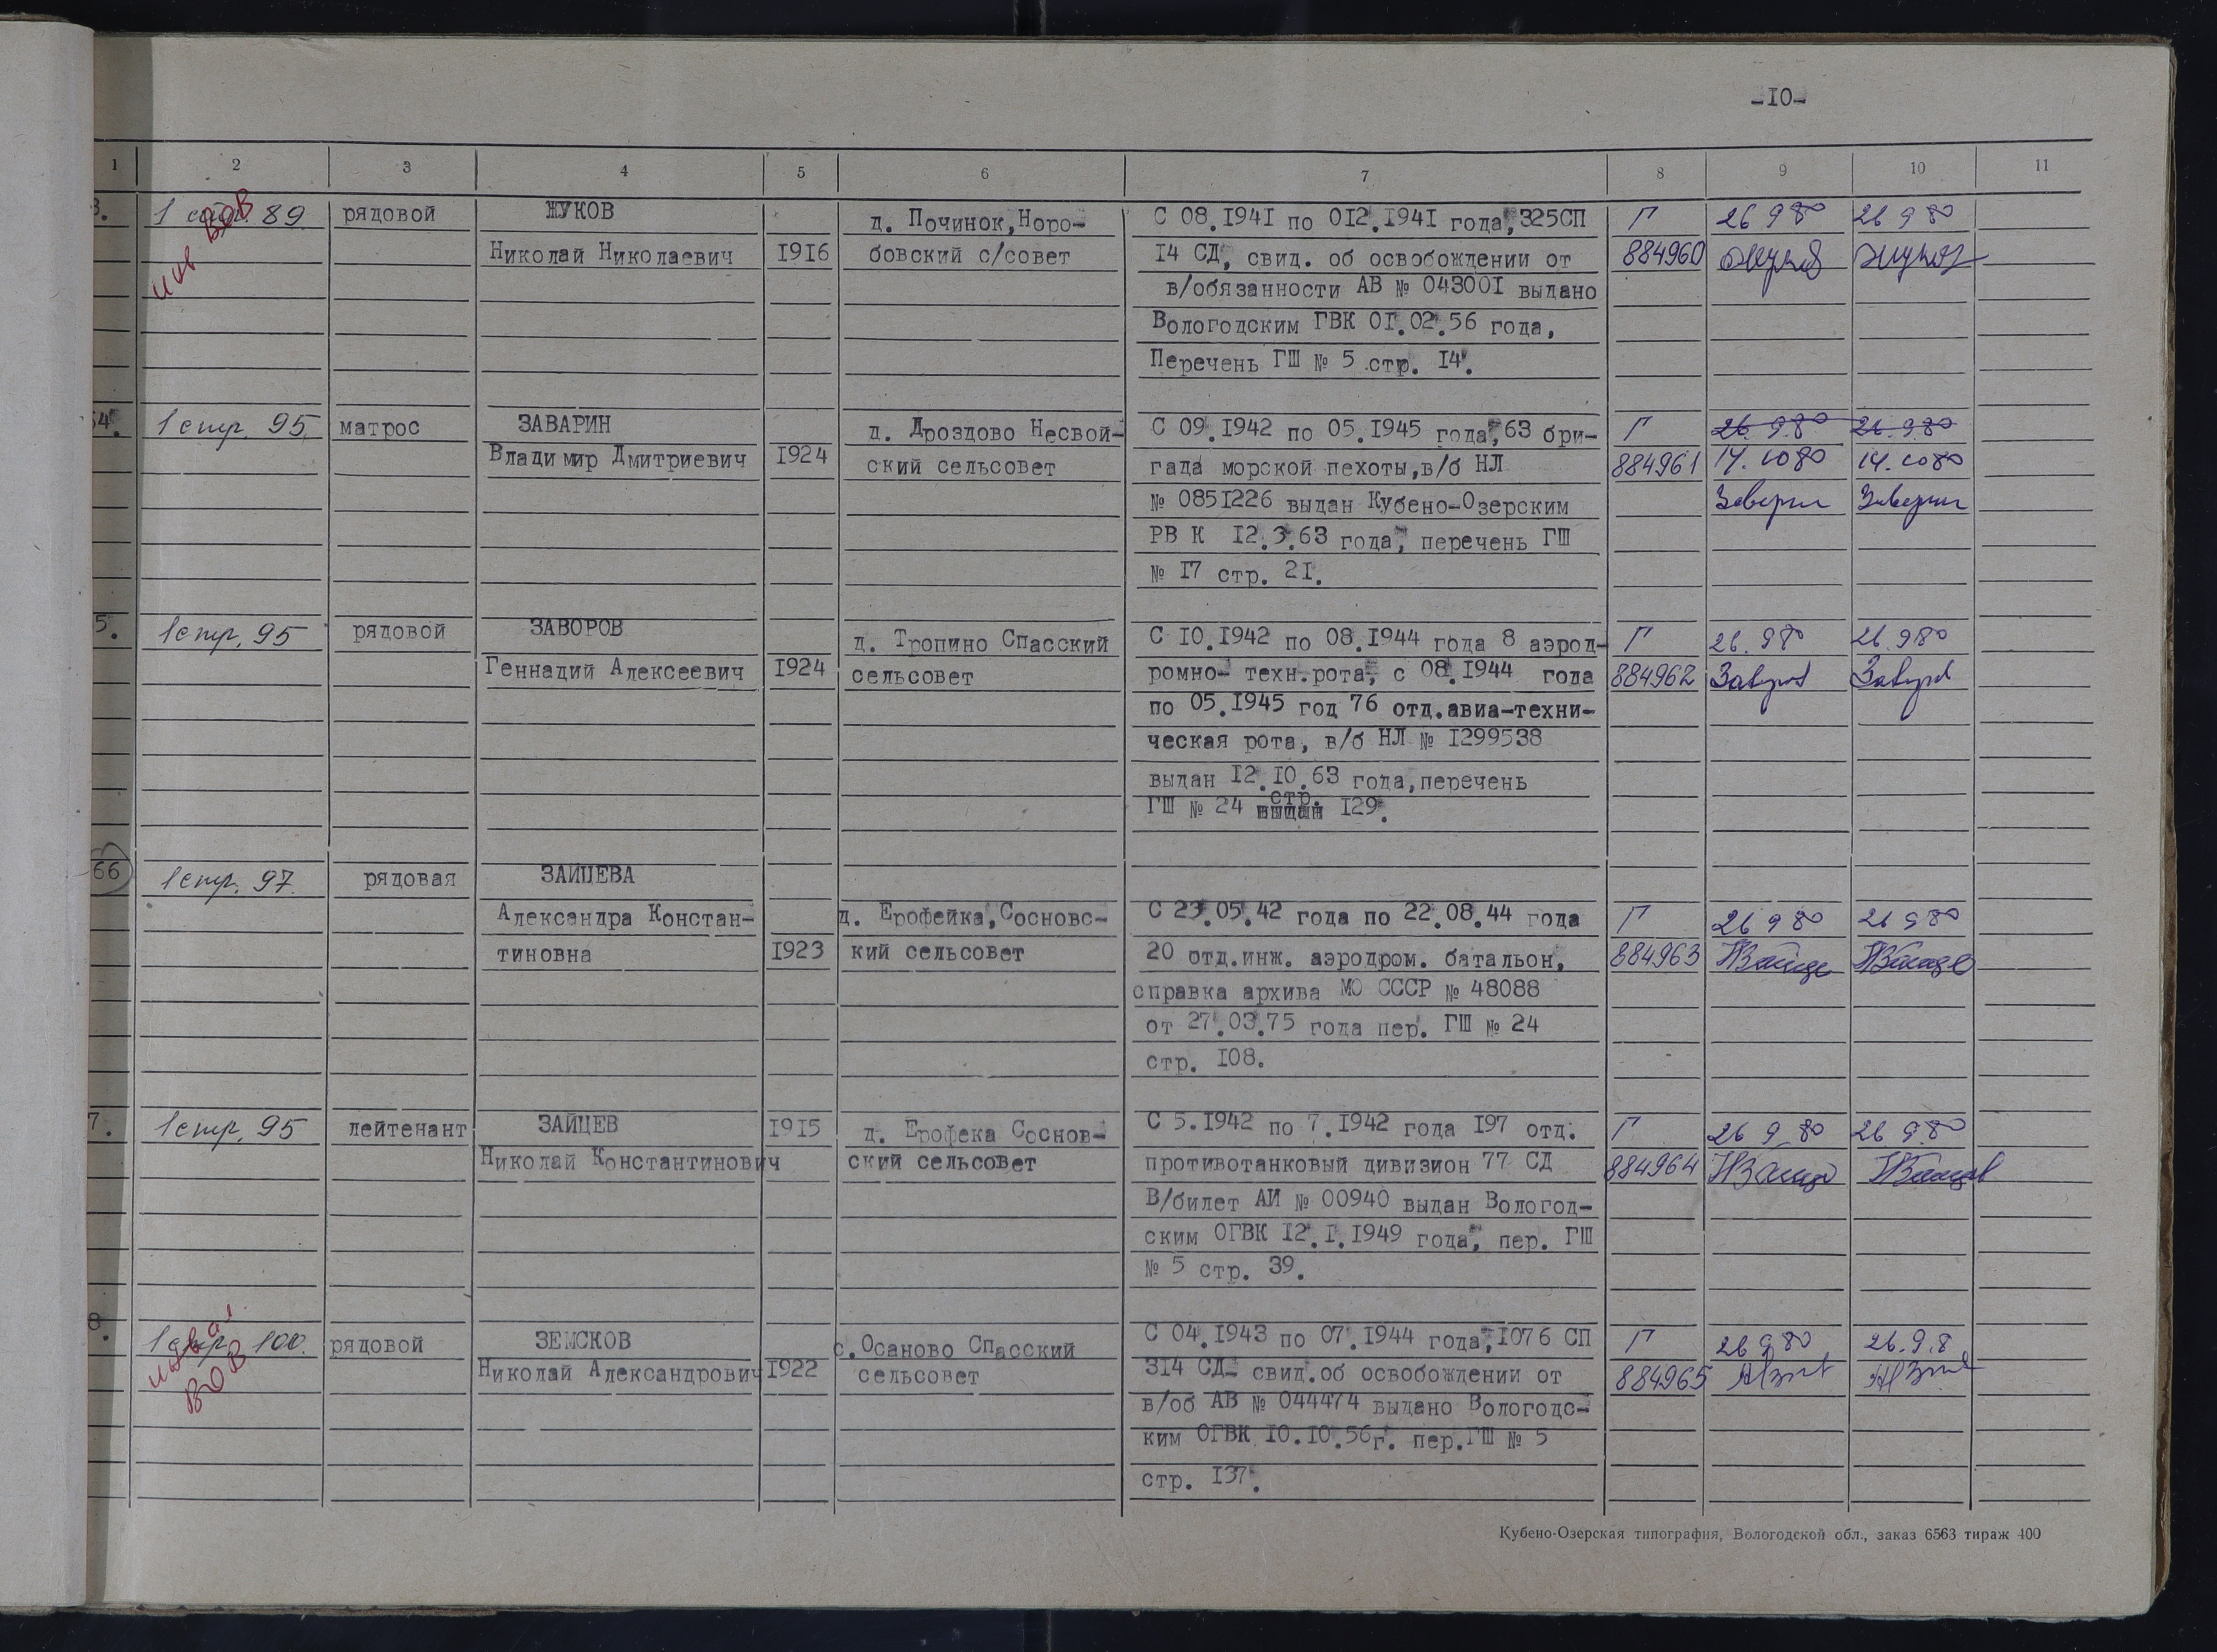 -10-
1 2 3 4 5 6 7 8 9 10 11
3. 1 стр. 89 рядовой ЖУКОВ
Николай Николаевич 1916
д. Починок, Норо-
бовский с/совет
С 08.1941 по 012.1941 года, 325СП
14 СД, свид. об освобождении от
в/обязанности АВ № 043001 выдано
Вологодским ГВК 01.02.56 года,
Перечень ГШ № 5 стр. 14.
Г
884960
26 9 80
Жуков
26 9 80
Жуков
инв ВОВ
54. 1 стр. 95. матрос ЗАВАРИН
Владимир Дмитриевич 1924
д. Дроздово Несвой-
ский сельсовет
С 09.1942 по 05.1945 года, 63 бри-
гада морской пехоты, в/б НЛ
№ 0851226 выдан Кубено-Озерским
РВ К 12.3.63 года, перечень ГШ
№ 17 стр. 21.
Г
884961
26. 9.80
14. 10 80
Заварин
26. 9.80
14. 10 80
Заварин
5. 1 стр. 95 рядовой ЗАВОРОВ
Геннадий Алексеевич 1924
д. Тропино Спасский
сельсовет
С 10.1942 по 08.1944 года 8 аэрод-
ромно- техн.рота, с 08.1944 года
по 05.1945 год 76 отд.авиа-техни-
ческая рота, в/б НЛ № 1299538
выдан 12.10.63 года, перечень
стр.
ГШ № 24 выдан 129.
Г
884962
26. 9 80
26. 9 80
66 1 стр. 97. рядовая ЗАЙЦЕВА
Александра Констан-
тиновна 1923
д. Ерофейка, Сосновс-
кий сельсовет
С 23.05.42 года по 22.08.44 года
20 отд.инж. аэродром. батальон,
справка архива МО СССР № 48088
от 27.03.75 года пер. ГШ № 24
стр. 108.
Г
884963
26 9 80
26 9 80
7. 1 стр. 95 лейтенант ЗАЙЦЕВ 1915
Николай Константинович
д. Ерофека Соснов-
ский сельсовет
С 5.1942 по 7.1942 года 197 отд.
противотанковый дивизион 77 СД
В/билет АИ № 00940 выдан Вологод-
ским ОГВК 12.1.1949 года, пер. ГШ
№ 5 стр. 39.
Г
884964
26 9 80
26 9 80
8. 1 стр. 100. рядовой ЗЕМСКОВ
Николай Александрович 1922
с. Осаново Спасский
сельсовет
С 04.1943 по 07.1944 года, 1076 СП
314 СД- свид.об освобождении от
в/об АВ № 044474 выдано Вологодс-
ким ОГВК 10.10.56г. пер.ГШ № 5
стр. 137.
Г
884965
26 9 80
26. 9. 8
ВОВ
Кубено-Озерская типография, Вологодской обл., заказ 6563 тираж 400